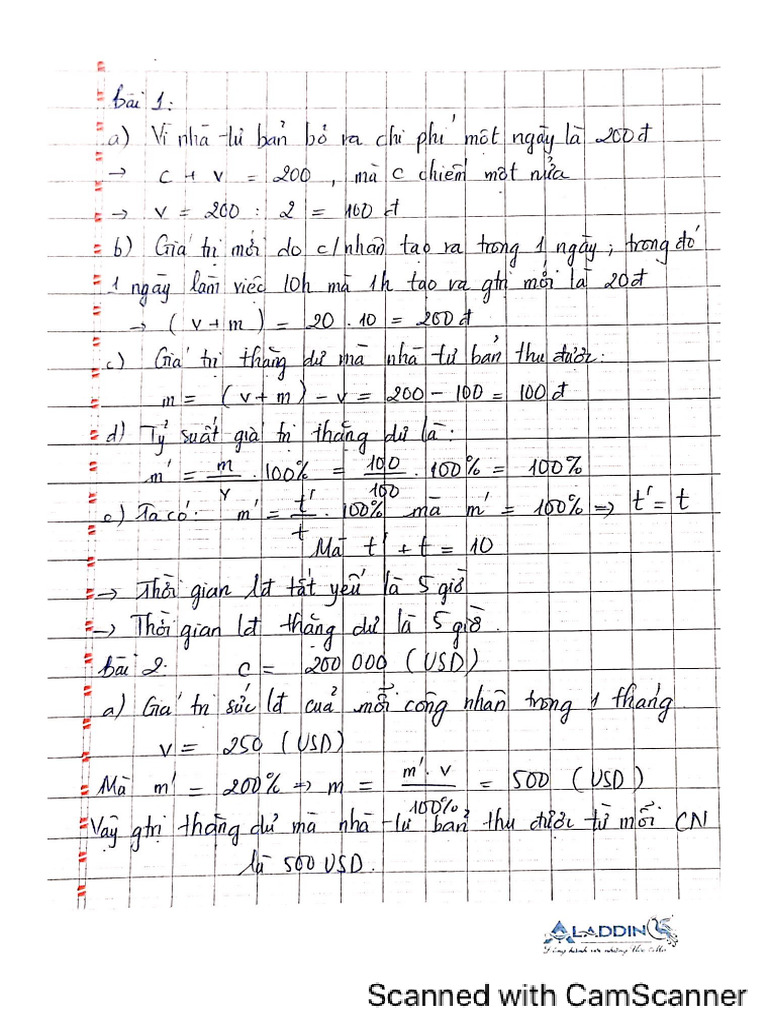 bài 1:
a) Vì nhà tư bản bỏ ra chi phí một ngày là 200đ
→ c + v = 200 , mà c chiếm một nửa
→ v = 200 : 2 = 100 đ
b) Giá trị mới do c/nhân tạo ra trong 1 ngày ; trong đó
1 ngày làm việc 10h mà 1h tạo ra gtrị mới là 20đ
→ (v+m) = 20 . 10 = 200đ
c) Giá trị thặng dư mà nhà tư bản thu được:
m = (v+m) - v = 200 - 100 = 100 đ
d) Tỷ suất giá trị thặng dư là:
m' = m/v . 100% = 100/100 . 100% = 100%
e) Ta có: m' = t'/t . 100% mà m' = 100% => t' = t
Mà t' + t = 10
→ Thời gian lđ tất yếu là 5 giờ
→ Thời gian lđ thặng dư là 5 giờ.
bài 2. c = 200 000 (USD)
a) Giá trị sức lđ của mỗi công nhân trong 1 tháng
v = 250 (USD)
Mà m' = 200% => m = m'.v/100% = 500 (USD)
Vậy gtrị thặng dư mà nhà tư bản thu được từ mỗi CN
là 500 USD.
ALADDIN
Scanned with CamScanner